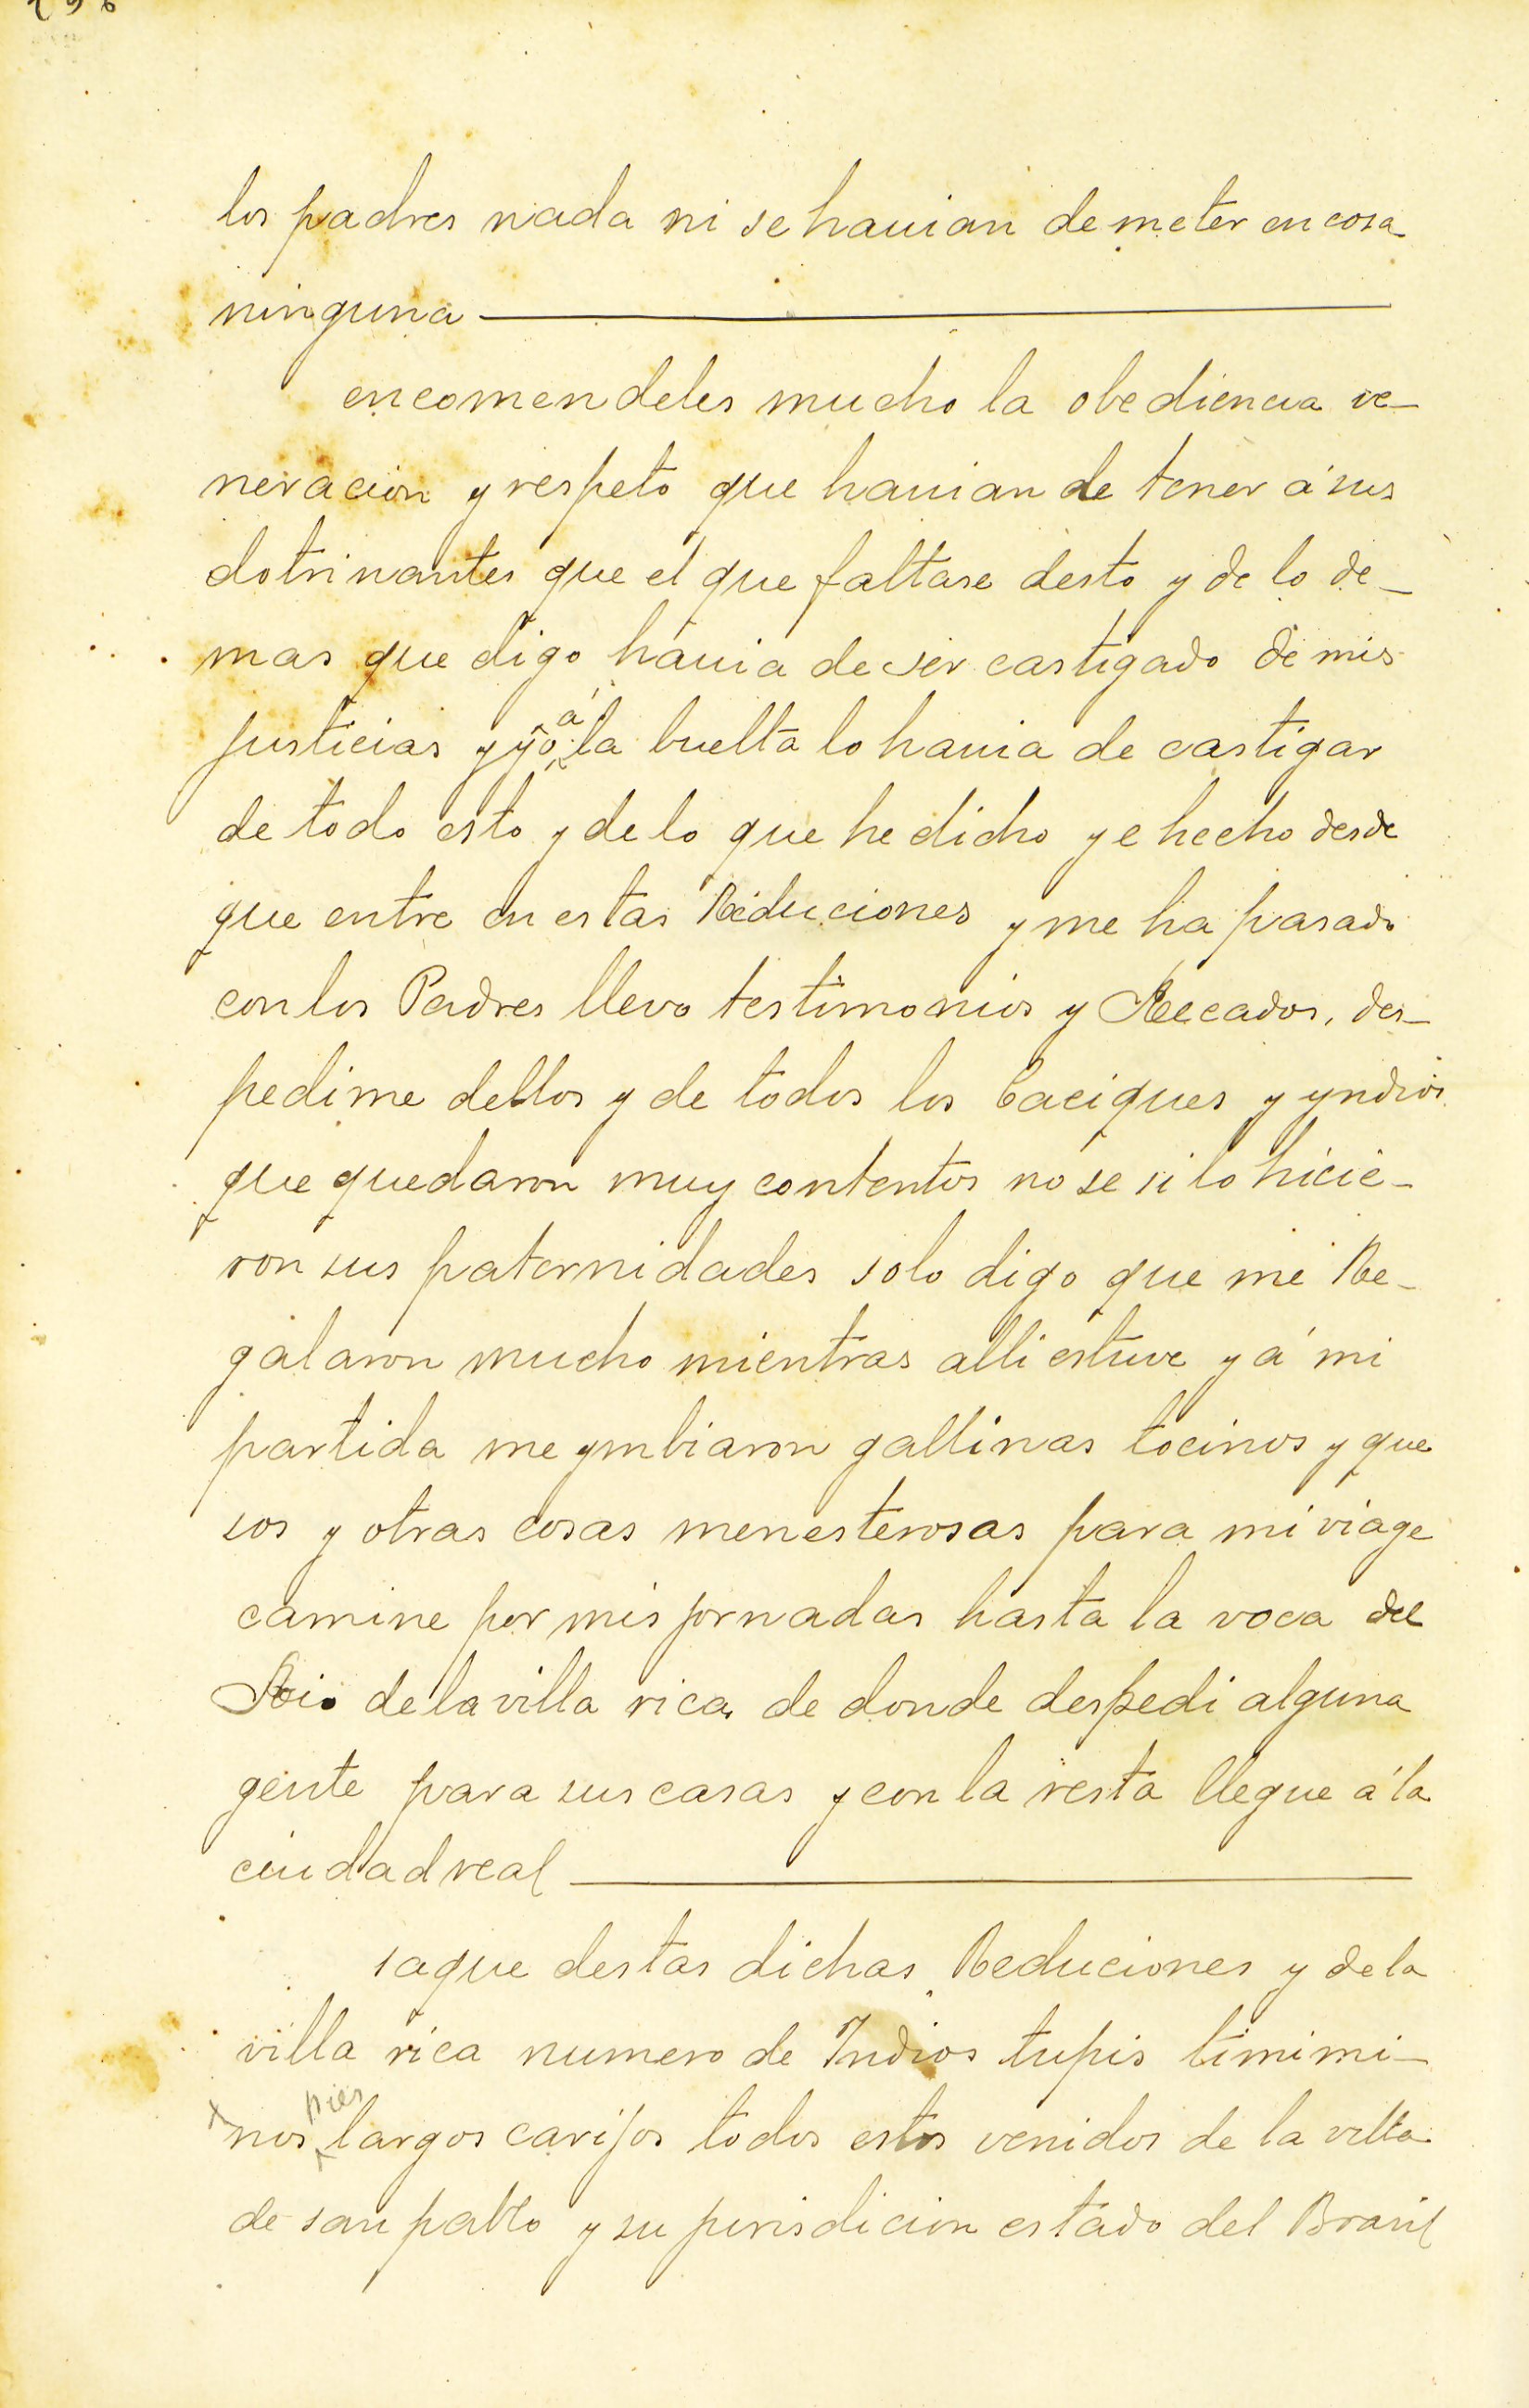 los padres nada ni se hauian de meter en cosa
ninguna
encomendeles mucho la obediencia ve-
neracion y respeto que hauian de tener á sus
dotrinantes que el que faltase desto y de lo de-
mas que digo hauia de ser castigado de mis
justicias y yo á la buelta lo hauia de castigar
de todo esto y de lo que he dicho y e hecho desde
que entre en estas Reduciones y me ha pasado
con los Padres llevo testimonios y Recados, des-
pedime dellos y de todos los Caciques y yndios
que quedaron muy contentos no se si lo hicie-
ron sus paternidades solo digo que me Re-
galaron mucho mientras alli estuve y á mi
partida me ymbiaron gallinas tocinos y que
sos y otras cosas menesterosas para mi viage
camine por mis jornadas hasta la voca del
Rio de la villa rica de donde despedi alguna
gente para sus casas y con la resta llegue á la
ciudad real
saque destas dichas Reduciones y de la
villa rica numero de Indios tupis timimi-
nos pies largos carijos todos estos venidos de la villa
de san pablo y su jurisdicion estado del Brasil